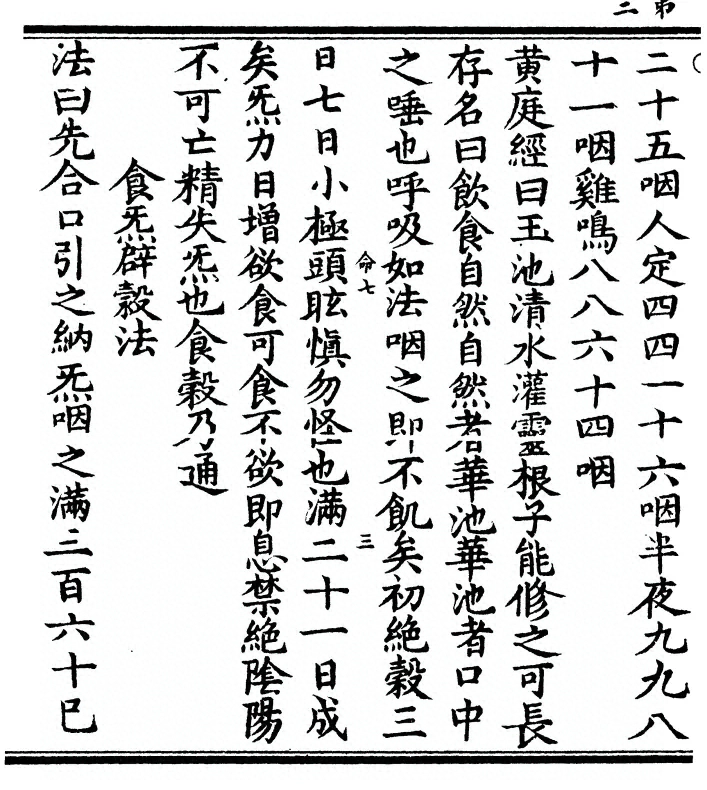 第二
二十五咽人定四四一十六咽半夜九九八
十一咽雞鳴八八六十四咽
黃庭經曰玉池清水灌靈根子能修之可長
存名曰飲食自然自然者華池華池者口中
之唾也呼吸如法咽之即不飢矣初絕穀三
命七
三
日七日小極頭眩慎勿怪也滿二十一日成
矣炁力日增欲食可食不欲即息禁絕陰陽
不可亡精失炁也食穀乃通
食炁辟穀法
法曰先合口引之納炁咽之滿三百六十巳